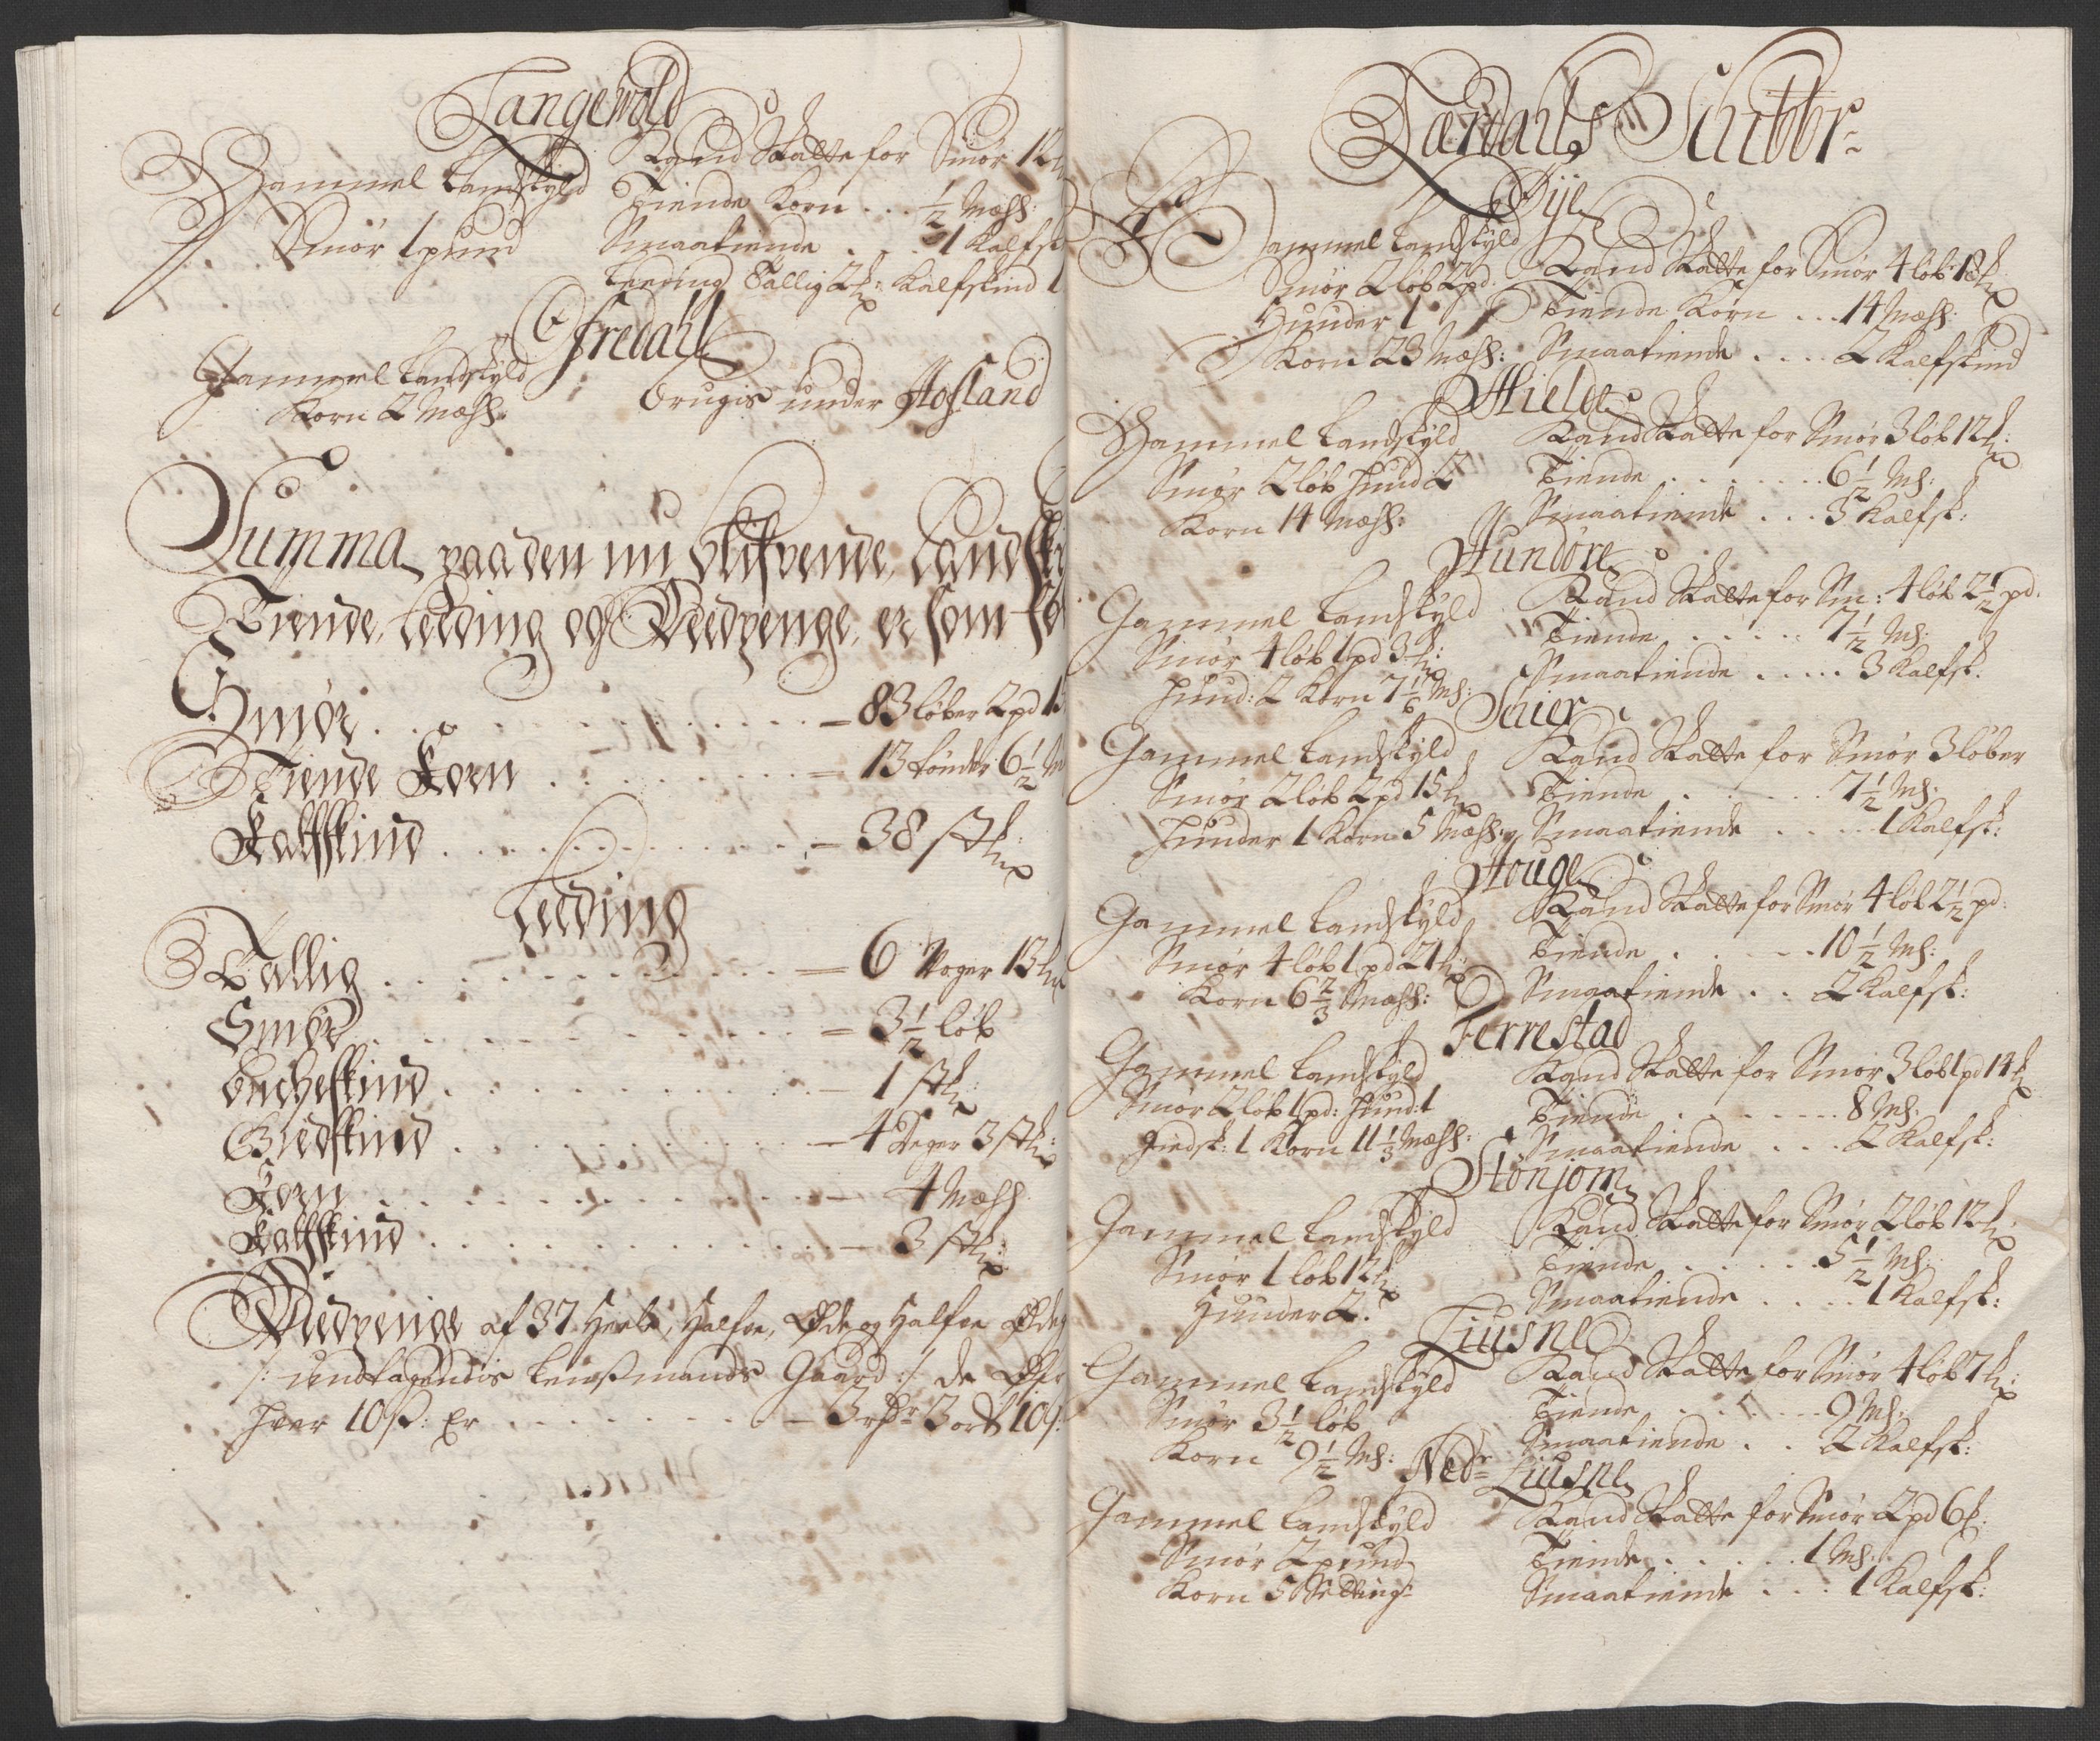 Tangewold
Gammel Landskyld Kand Skatte for Smør 12
Smør 1 pund Tiende Korn . . . ½ Mæhl:
Smaatiende . . . 1 Kalfsk
Leeding Tallig 2 Kalfskind 1
Ofredahl
Gammel Landskyld
Korn 2 Mæhl:
brugis under Hofland
Summa paa den nu blifvende Landsky
Tiende, Leeding og Veedpenge, er som fø
Smør . . . 83 løber 2 pd 1
Tiende Korn . . . 13 tønder 6½ M
Kalfskind . . . 38 stk:
Leeding
Tallig . . . 6 Voger 13
Smør . . . 3½ løb
Buckeskind . . . 1 stk:
Giedskind . . . 4 Deger 3 stk:
Korn . . . 4 Mæhl
Kalfskind . . . 3 stk:
Wiedpenge af 37 Heele, Halfve, Øde og Halfve Ødeg
/: undtagendis Lensmands Gaard :/ de
hver 10 ß: Er . . . 3 rdr 3 ort 10 ß:
Dærdahls Schibbr
Øije
Gammel Landskyld
Smør 2 løb 2 pd
Huuder 1
Korn 23 Mæhl:
Kand Skatte for Smør 4 løb 18
Tiende Korn . . . 14 Mæhl:
Smaatiende . . . 2 Kalfskind
Hielde
Gammel Landskyld
Smør 2 løb Huud 2
Korn 14 Mæhl:
Kand Skatte for Smør 3 løb 12
Tiende . . . 6½ Mh:
Smaatiende . . . 3 Kalfsk:
Hundøre
Gammel Landskyld
Smør 4 løb 1 pd 3
Huud: 2 Korn 7⅙ Mh:
Kand Skatte for Sm: 4 løb 2½ pd.
Tiende . . . 7½ Mh:
Smaatiende . . . 3 Kalfsk.
Schier
Gammel Landskyld
Smør 2 løb 2 pd 15
Huuder 1 Korn 5 Mæhl:
Kand Skatte for Smør 3 løber
Tiende . . . 7½ Mh:
Smaatiende . . . 1 Kalfsk:
Houge
Gammel Landskyld
Smør 4 løb 1 pd 21
Korn 6⅔ Mæhl:
Kand Skatte for Smør 4 løb 2½ pd:
Tiende . . . 10½ Mh:
Smaatiende . . 2 Kalfsk:
Ferrestad
Gammel Landskyld
Smør 2 løb 1 pd: Huud: 1
Giedsk: 1 Korn 11⅓ Mæhl:
Kand Skatte for Smør 3 løb 1 pd 14
Tiende . . . 8 Mh:
Smaatiende . . . 2 Kalfsk:
Stønjom
Gammel Landskyld
Smør 1 løb 12
Huuder 2.
Kand Skatte for Smør 2 løb 12
Tiende . . . 5½ Mh:
Smaatiende . . . 1 Kalfsk:
Liusne
Gammel Landskyld
Smør 3½ løb
Korn 9½ Mh:
Kand Skatte for Smør 4 løb 7
Tiende . . . 9 Mh:
Smaatiende . . 2 Kalfsk:
Nedr Liusne
Gammel Landskyld
Smør 2 pund
Korn 5 Setting
Kand Skatte for Smør 2 pd 6
Tiende . . . 1 Mh:
Smaatiende . . . 1 Kalfsk: